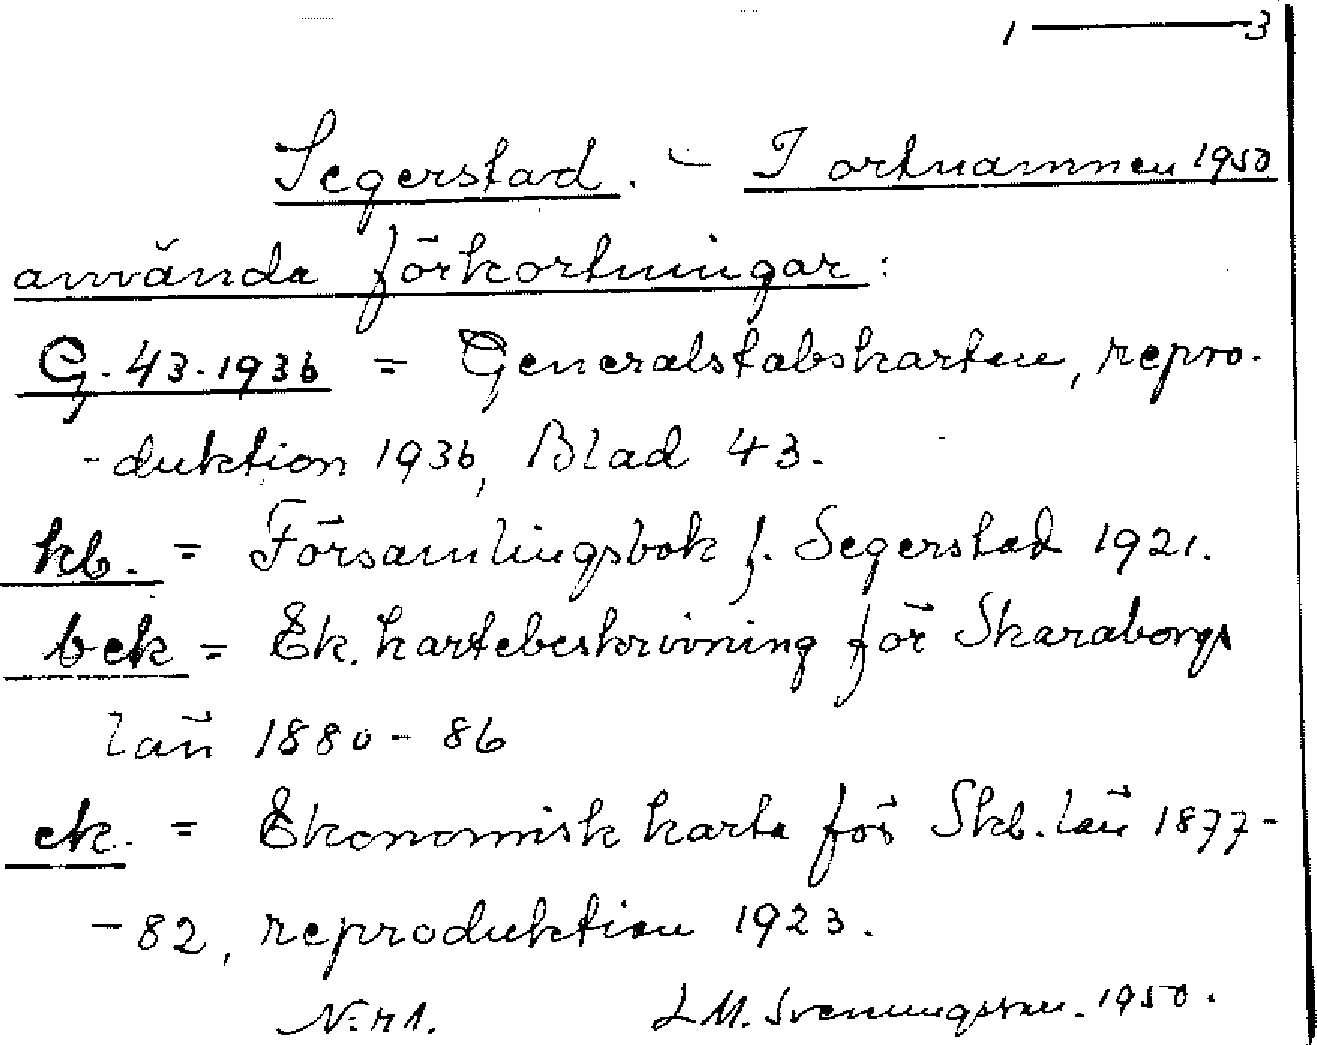 1 — 3
Segerstad. – I ortnamnen 1950
använda förkortningar:
G. 43. 1936 = Generalstabskartan, repro-
-duktion 1936, Blad 43.
kb. = Församlingsbok f. Segerstad 1921.
bek = Ek. kartebeskrivning för Skaraborgs
län 1880 - 86
ek. = Ekonomisk karta för Skb. län 1877-
-82, reproduktion 1923.
N:r 1. L M. Svenungsson. 1950.